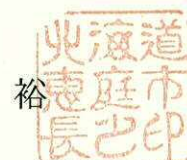 裕
北海道
恵庭市
長之印